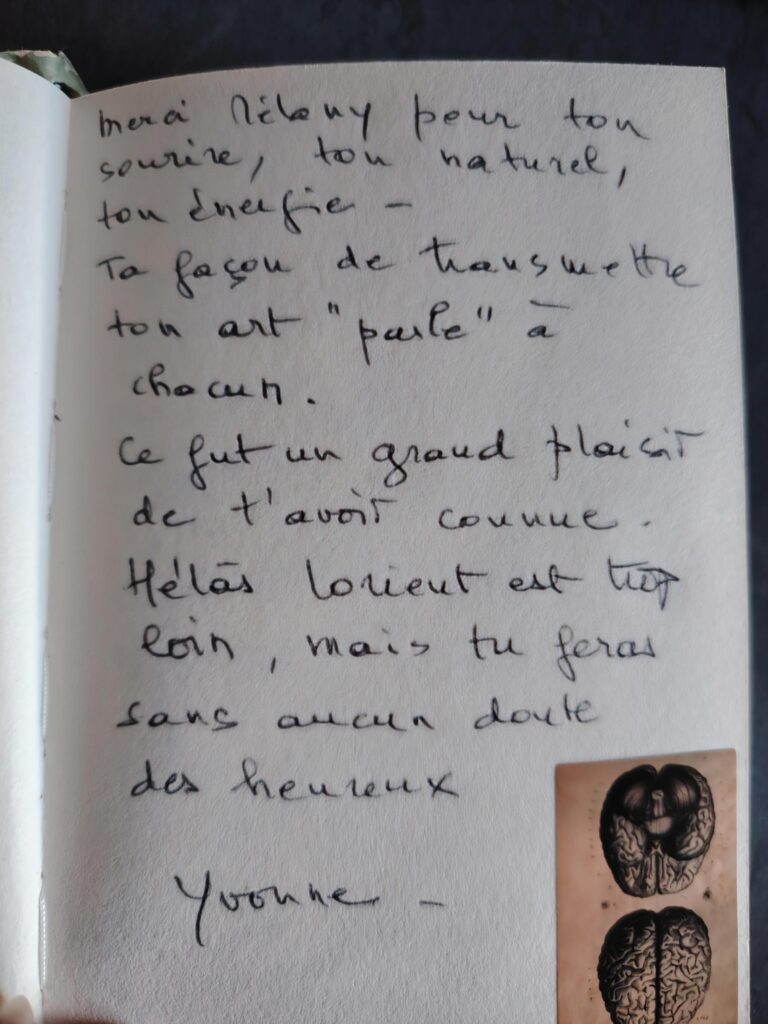 merci Mélany pour ton
sourire, ton naturel,
ton énergie -
Ta façon de transmettre
ton art "parle" à
chacun.
Ce fut un grand plaisir
de t'avoir connue.
Hélas Lorient est trop
loin, mais tu feras
sans aucun doute
des heureux
Yvonne -